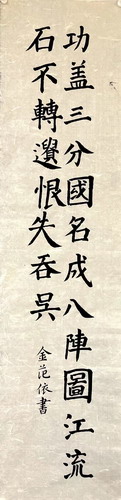 功盖三分國名成八陣圖江流
石不轉遺恨失吞吳
金范依書